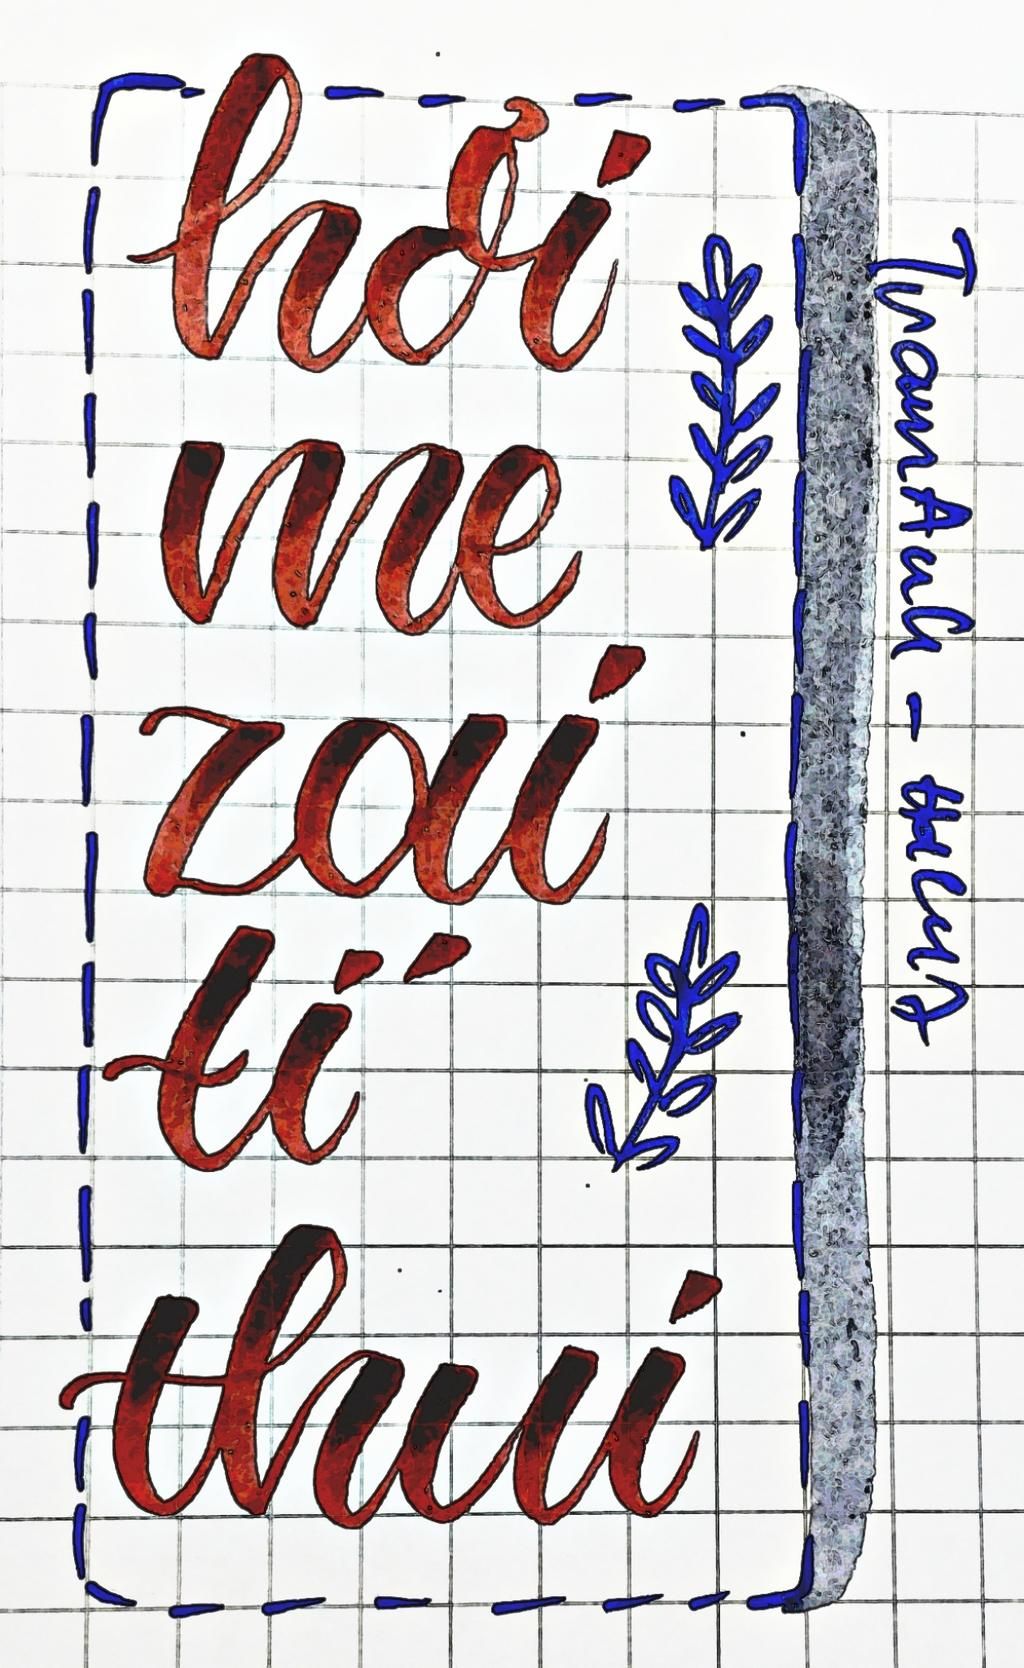 hơi
me
zai
tí
thui
TramAnh -